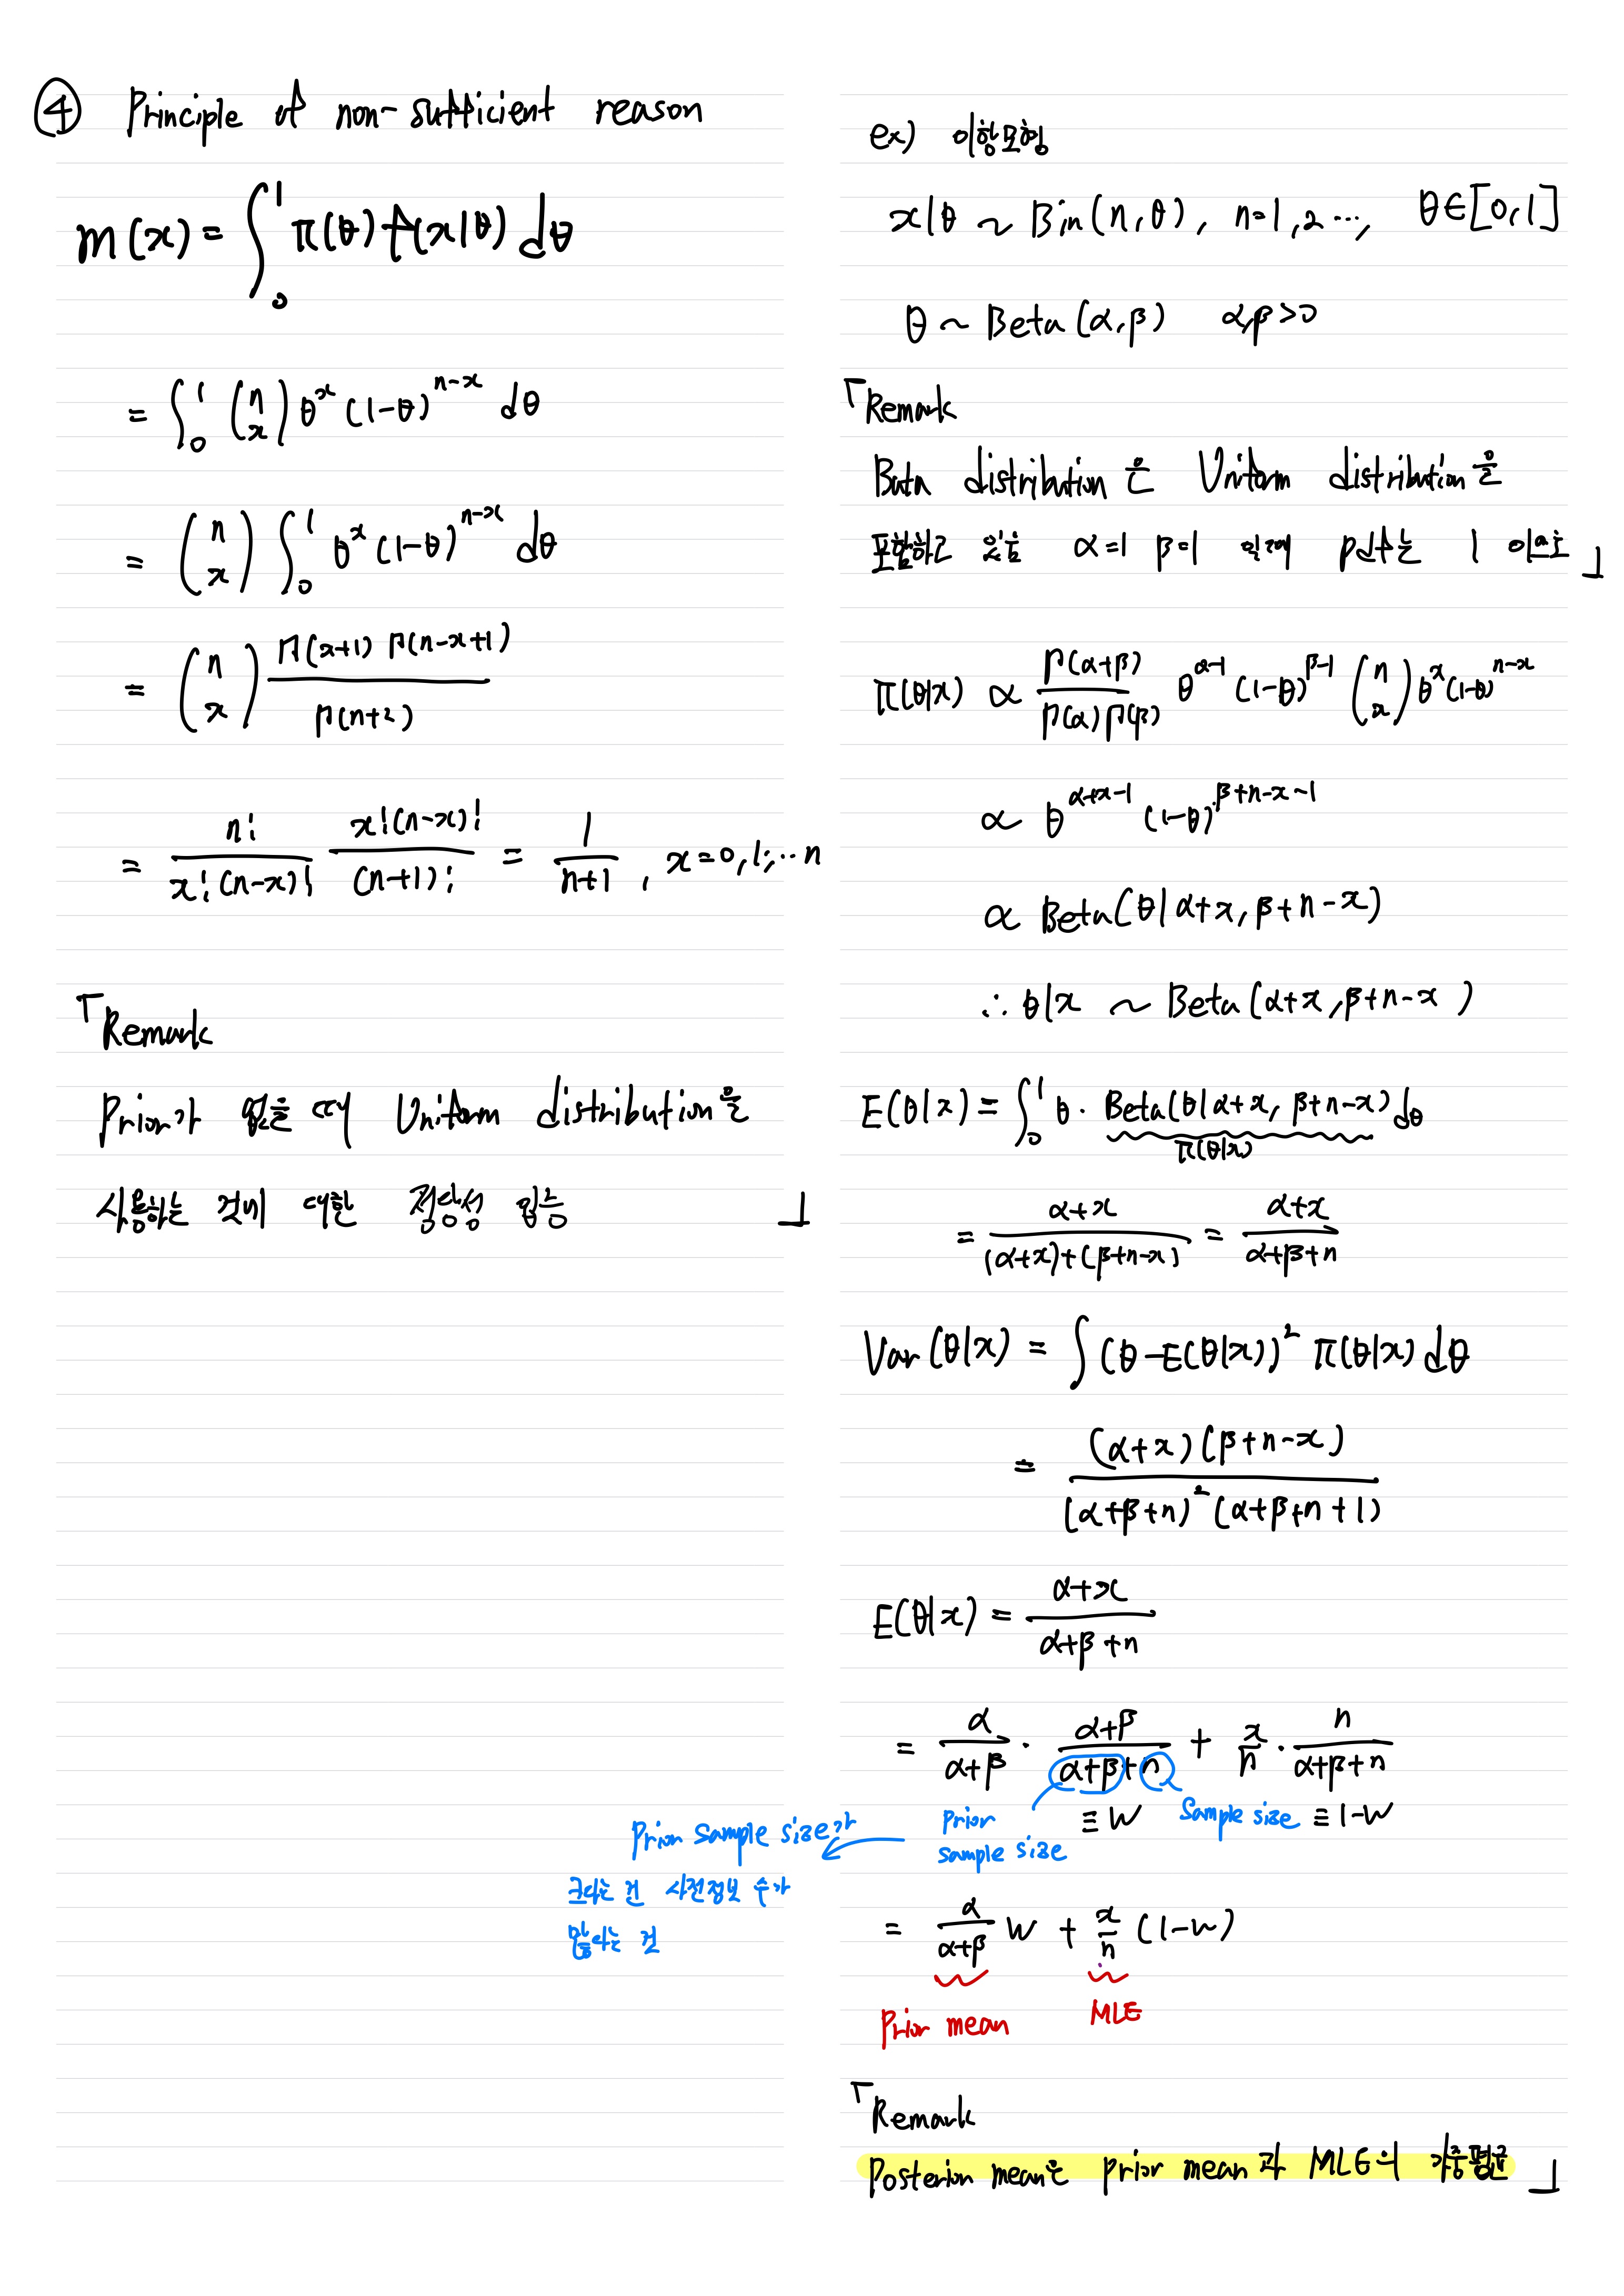 ④ Principle of non-sufficient reason
m(x) = ∫₀¹ π(θ) f(x|θ) dθ
= ∫₀¹ (n x) θ^x (1-θ)^{n-x} dθ
= (n x) ∫₀¹ θ^x (1-θ)^{n-x} dθ
= (n x) Γ(x+1) Γ(n-x+1) / Γ(n+2)
= n! / x!(n-x)! x!(n-x)! / (n+1)! = 1 / n+1 , x=0,1,… n
「Remark
Prior가 없을 때 Uniform distribution을
사용하는 것에 대한 정당성 있음 」
ex) 이항모형
x|θ ~ Bin(n,θ), n=1,2…, θ∈[0,1]
θ ~ Beta(α,β) α,β>0
「Remark
Bata distribution은 Uniform distribution을
포함하고 있음 α=1 β=1 일때 pdf는 1 이므로 」
π(θ|x) ∝ Γ(α+β) / Γ(α)Γ(β) θ^{α-1} (1-θ)^{β-1} (n x) θ^x (1-θ)^{n-x}
∝ θ^{α+x-1} (1-θ)^{β+n-x-1}
∝ Beta(θ|α+x, β+n-x)
∴ θ|x ~ Beta(α+x, β+n-x)
E(θ|x) = ∫₀¹ θ · Beta(θ|α+x, β+n-x) dθ
π(θ|x)
= α+x / (α+x)+(β+n-x) = α+x / α+β+n
Var(θ|x) = ∫ (θ-E(θ|x))² π(θ|x) dθ
= (α+x)(β+n-x) / (α+β+n)² (α+β+n+1)
E(θ|x) = α+x / α+β+n
= α / α+β · α+β / α+β+n + x/n · n / α+β+n
≡ W Sample size ≡ 1-W
Prior
sample size
Prior sample size가
크다는 건 사전정보 수가
많다는 것
= α / α+β W + x/n (1-W)
Prior mean MLE
「Remark
Posterior mean은 prior mean과 MLE의 가중평균 」